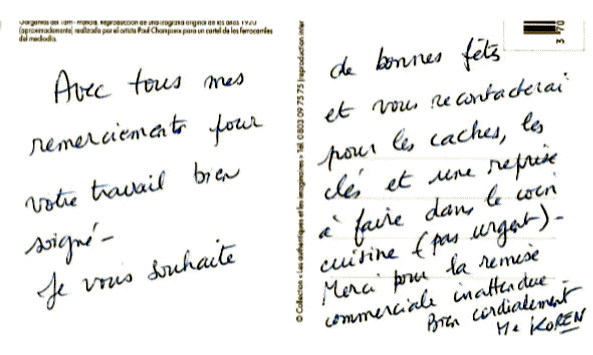 Gorges du Tarn - Francia. Reproducción de una litografía original de los años 1920
(aproximadamente) realizada por el artista Paul Champseix para un cartel de los ferrocarriles
del mediodía.
Avec tous mes
remerciements pour
votre travail bien
soigné-
Je vous souhaite
© Collection • Les authentiques et les imaginaires • Tél. 0 803 09 75 75 | reproduction inter
3 70
de bonnes fêts
et vous recontacterai
pour les caches, les
clés et une reprise
à faire dans le coin
cuisine (pas urgent)-
Merci pour la remise
commerciale inattendue-
Bien cordialement
Me KOREN